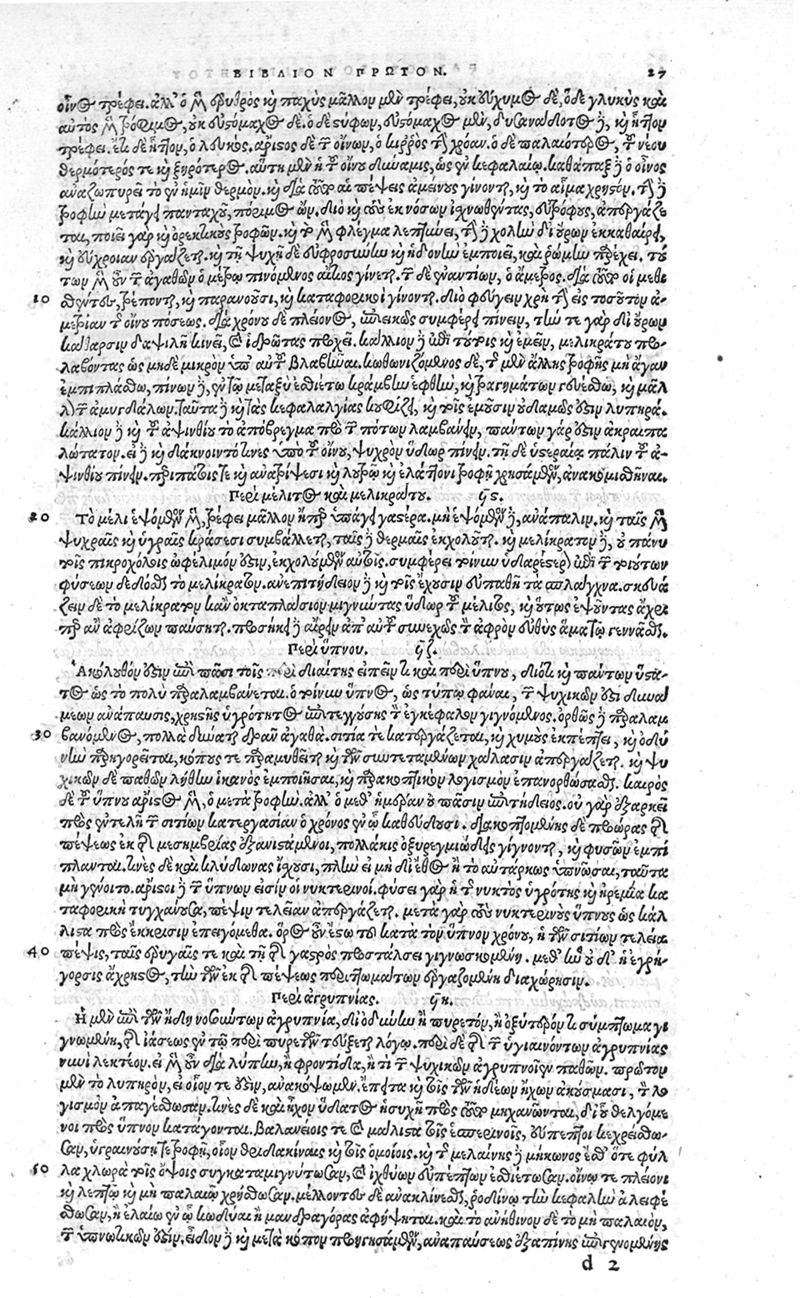 ΒΙΒΛΙΟΝ ΠΡΩΤΟΝ. 27
οἶνος τρέφει. ἀλλ' ὁ μὲν ἐρυθρὸς καὶ παχὺς μᾶλλον μὲν τρέφει, οὐκ εὔχυμος δέ, ὁ δὲ γλυκὺς καὶ
αὐτὸς μὲν τρόφιμος, οὐκ εὐστόμαχος δέ. ὁ δὲ στύφων, εὐστόμαχος μὲν, δυσανάδοτος δὲ, καὶ ἧττον
τρέφει. ἔτι δὲ ἧττον, ὁ λευκός. ἄριστος δὲ τῶν οἴνων, ὁ κιρρὸς τὴν χρόαν. ὁ δὲ παλαιότερος, τοῦ νέου
θερμότερός τε καὶ ξηρότερος. αὕτη μὲν ἡ τοῦ οἴνου δύναμις, ὡς ἐν κεφαλαίῳ. καθάπαξ δὲ ὁ οἶνος
ἀναζωπυρεῖ τὸ ἐν ἡμῖν θερμόν. καὶ διὰ τοῦτο αἱ πέψεις ἀμείνους γίνονται, καὶ τὸ αἷμα χρηστόν. τὴν δὲ
τροφὴν μετάγει πανταχοῦ, πόριμος ὤν. διὸ καὶ τοὺς ἐκ νόσων ἰσχνωθέντας, εὐτρόφους, ἀπεργάζε
ται, ποιεῖ γὰρ καὶ ὀρεκτικοὺς τροφῶν. καὶ τὸ μὲν φλέγμα λεπτύνει, τὴν δὲ χολὴν δι' οὔρων ἐκκαθαίρει,
καὶ εὔχροιαν ἐργάζεται. καὶ τῇ ψυχῇ δὲ εὐφροσύνην καὶ ἡδονὴν ἐμποιεῖ, καὶ ῥώμην παρέχει. τού
των μὲν οὖν τῶν ἀγαθῶν ὁ μέτρῳ πινόμενος αἴτιος γίνεται. τῶν δὲ ἐναντίων, ὁ ἄμετρος. διὰ τοῦτο οἱ μεθυ
10 σθέντες, τρέπονται, καὶ παρανοοῦσι, καὶ καταφορικοὶ γίνονται. διὸ φεύγειν χρὴ τὴν εἰς τοσοῦτον ἀ-
μετρίαν τοῦ οἴνου πόσεως. διὰ χρόνου δὲ πλείονος, ἐπιεικῶς συμφέρει πίνειν, τήν τε γὰρ δι' οὔρων
κάθαρσιν δαψιλῆ κινεῖ, καὶ ἱδρῶτας προχεῖ. κάλλιον δὲ ἐπὶ τούτοις καὶ ἐμεῖν, μελικράτου προ-
λαβόντας ὡς μηδὲ μικρὸν ὑπ' αὐτοῦ βλαβῆναι. κωθωνιζόμενος δὲ, τῆς μὲν ἄλλης τροφῆς μὴ ἄγαν
ἐμπιπλάσθω, πίνων δὲ, ἐν τῷ μεταξὺ ἐσθιέτω κράμβην ἑφθὴν, καὶ τραγημάτων γευέσθω, καὶ μάλ
λον τῶν ἀμυγδάλων. ταῦτα δὲ καὶ τὰς κεφαλαλγίας κουφίζει, καὶ τοῖς ἐμοῦσιν οὐδαμῶς ἐστιν λυπηρά.
κάλλιον δὲ καὶ τοῦ ἀψινθίου τὸ ἀπόβρεγμα πρὸ τῶν πότων λαμβάνειν, πάντων γάρ ἐστιν ἀκραιπα
λώτατον. εἰ δὲ καὶ δάκνοιντό τινες ὑπὸ τοῦ οἴνου, ψυχρὸν ὕδωρ πίνειν. τῇ δὲ ὑστεραίᾳ πάλιν τοῦ ἀ-
ψινθίου πίνειν. περιπάτοις τε καὶ ἀνατρίψεσι καὶ λουτρῷ καὶ ἐλάττονι τροφῇ χρησάμενοι, ἀνακομισθῆναι.
Περὶ μέλιτος καὶ μελικράτου. ϟϛ.
20 Τὸ μέλι ἑψόμενον μὲν, τρέφει μᾶλλον ἤπερ ὑπάγει γαστέρα. μὴ ἑψόμενον δὲ, ἀνάπαλιν. καὶ ταῖς μὲν
ψυχραῖς καὶ ὑγραῖς κράσεσι συμβάλλεται, ταῖς δὲ θερμαῖς ἐκχολοῦται. καὶ μελίκρατον δὲ, οὐ πάνυ
τοῖς πικροχόλοις ὠφέλιμόν ἐστιν, ἐκχολούμενον αὐτοῖς. συμφέρει τοίνυν ὑδαρέστερον ἐπὶ τῶν τοιούτων
φύσεων δίδοσθαι τὸ μελίκρατον. ἀνεπιτήδειον δὲ καὶ τοῖς ἔχουσιν εὐπαθῆ τὰ σπλάγχνα. σκευά
ζειν δὲ τὸ μελίκρατον καὶ ὀκταπλάσιον μιγνύντας ὕδωρ τοῦ μέλιτος, καὶ οὕτως ἑψοῦντας ἄχρι
περ ἂν ἀφρίζων παύσηται. προσήκει δὲ αἴρειν ἀπ' αὐτοῦ συνεχῶς τὸν ἀφρὸν εὐθὺς ἅμα τῷ γεννᾶσθαι.
Περὶ ὕπνου. ϟζ.
Ἀκόλουθόν ἐστιν ἐπὶ πᾶσι τοῖς περὶ διαίτης εἰπεῖν τι καὶ περὶ ὕπνου, διότι καὶ πάντων ὕστα-
τος ὡς τὸ πολὺ παραλαμβάνεται. ὁ τοίνυν ὕπνος, ὡς τύπῳ φάναι, τῶν ψυχικῶν ἐστι δυνά
μεων ἀνάπαυσις, χρηστῆς ὑγρότητος ἐπιτεγγούσης τὸν ἐγκέφαλον γιγνόμενος. ὀρθῶς δὲ παραλαμ
30 βανόμενος, πολλὰ δύναται δρᾶν ἀγαθά. σιτία τε κατεργάζεται, καὶ χυμοὺς ἐκπέττει, καὶ ὀδύ
νην παρηγορεῖται, κόπους τε παραμυθεῖται καὶ τῶν συντεταμένων χάλασιν ἀπεργάζεται. καὶ ψυ
χικῶν δὲ παθῶν λήθην ἱκανὸς ἐμποιῆσαι, καὶ παρακοπτικὸν λογισμὸν ἐπανορθώσασθαι. καιρὸς
δὲ τοῦ ὕπνου ἄριστος μὲν, ὁ μετὰ τροφήν. ἀλλ' ὁ μεθ' ἡμέραν οὐ πᾶσιν ἐπιτήδειος. οὐ γὰρ ἐξαρκεῖ
πρὸς ἐντελῆ τῶν σιτίων κατεργασίαν ὁ χρόνος ἐν ᾧ καθεύδουσι. διακοπτομένης δὲ προώρας τῆς
πέψεως ἐκ τῆς μεσημβρίας ἐξανιστάμενοι, πολλάκις ὀξυρεγμιώδεις γίγνονται, καὶ φυσῶν ἐμπί
πλανται. τινὲς δὲ καὶ κλύδωνας ἴσχουσι, πλὴν εἰ μὴ δι' ἔθος ἢ τὸ αὐτάρκως ὑπνῶσαι, ταῦτα
μὴ γένοιτο. ἄριστοι δὲ τῶν ὕπνων εἰσὶν οἱ νυκτερινοί. φύσει γὰρ ἡ τῆς νυκτὸς ὑγρότης καὶ ἠρεμία κα
ταφορικὴ τυγχάνουσα, πέψιν τελείαν ἀπεργάζεται. μετὰ γὰρ τοὺς νυκτερινοὺς ὕπνους ὡς κάλ
λιστα πρὸς ἔκκρισιν ἐπειγόμεθα. ὅρος οὖν ἔστω τοῦ κατὰ τὸν ὕπνον χρόνου, ἡ τῶν σιτίων τελεία
40 πέψις, ταῖς ἐρυγαῖς τε καὶ τῇ τῆς γαστρὸς προστάλσει γιγνωσκομένη. μεθ' ἣν οὐδ' ἡ ἐγρή-
γορσις ἄχρηστος, τὴν τῶν ἐκ τῆς πέψεως περιττωμάτων ἐργαζομένη διαχώρησιν.
Περὶ ἀγρυπνίας. ϟη.
Ἡ μὲν ἐπὶ τῶν ἤδη νοσούντων ἀγρυπνία, δι' ὀδύνην ἢ πυρετόν, ἢ ὀξύτερόν τι σύμπτωμα γι
γνομένη, τῆς ἰάσεως ἐν τῷ περὶ πυρετῶν τεύξεται λόγῳ. περὶ δὲ τῆς τῶν ὑγιαινόντων ἀγρυπνίας
νυνὶ λεκτέον. εἰ μὲν οὖν διὰ λύπην, ἢ φροντίδα, ἤ τι τῶν ψυχικῶν ἀγρυπνοῖεν παθῶν. πρῶτον
μὲν τὸ λυπηρὸν, εἰ οἷόν τε ἐστιν, ἀνακόψωμεν. ἔπειτα καὶ τοῖς τῶν ἡδέων ἤχων ἀκούσμασι, τὸν λο
γισμὸν ἀπαγέσθωσαν. τινὲς δὲ καὶ ἦχον ὕδατος ἡσυχῇ πρὸς τοῦτο μηχανῶνται, δι' οὗ θελγόμε
νοι πρὸς ὕπνον κατάγονται. βαλανείοις τε καὶ μάλιστα τοῖς ἑσπερινοῖς, εὔπεπτοι κεχρήσθω-
σαν, ὑγραινούσῃ τε τροφῇ, οἷον θριδακίναις καὶ τοῖς ὁμοίοις. καὶ τῆς μελαίνης δὲ μήκωνος ἔσθ' ὅτε φύλ
50 λα χλωρὰ τοῖς ὄψοις συγκαταμιγνύτωσαν, καὶ ἰχθύων εὐπέπτων ἐσθιέτωσαν. οἴνῳ τε πλείονι
καὶ λεπτῷ καὶ μὴ παλαιῷ χρήσθωσαν. μέλλοντες δὲ ἀνακλίνεσθαι, ῥοδίνῳ τὴν κεφαλὴν ἀλειφέ
σθωσαν, ἢ ἐλαίῳ ἐν ᾧ κωδύαι ἢ μανδραγόρας ἀφήψηται. καὶ τὸ ἀνήθινον δὲ τὸ μὴ παλαιόν,
τῶν ὑπνωτικῶν ἐστιν. εἶδον δὲ καὶ μετὰ κόπον
d 2